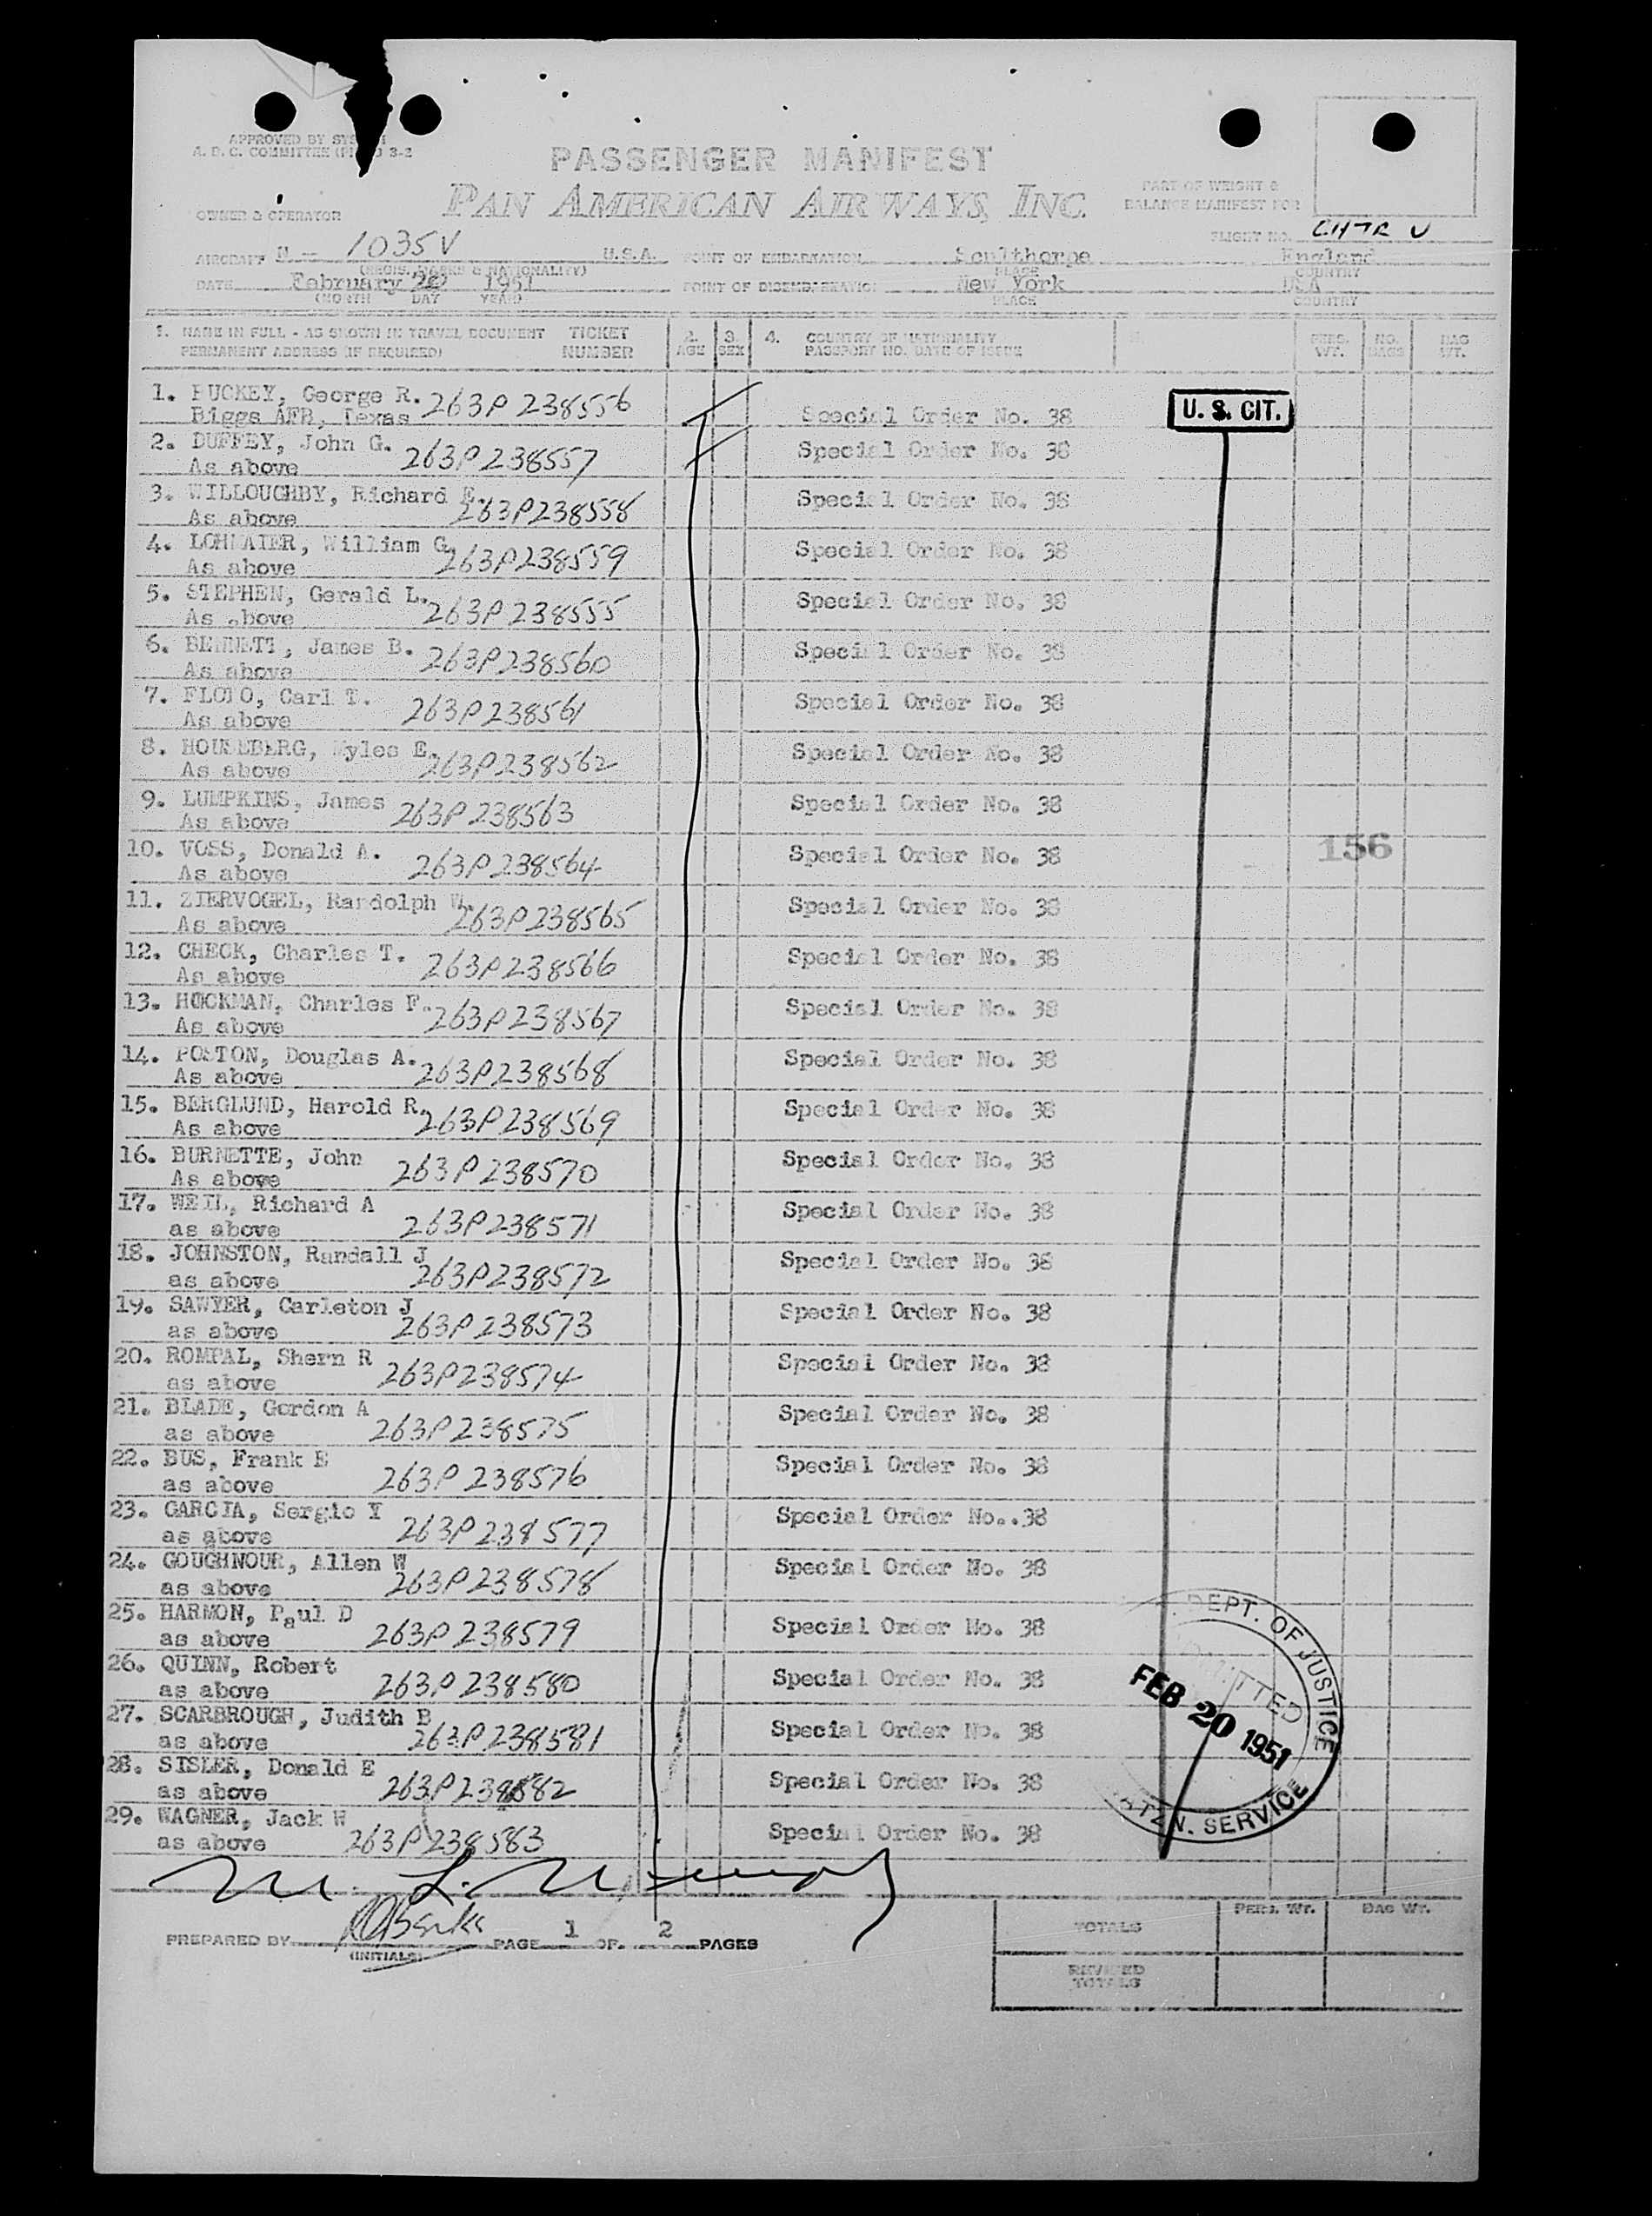 APPROVED BY
A. D. C. COMMITTEE 3-2
PASSENGER MANIFEST
PAN AMERICAN AIRWAYS, INC.
PART OF WEIGHT &
BALANCE MANIFEST FOR
OWNER & OPERATOR
FLIGHT NO. CHTR V
AIRCRAFT N - 1035V U.S.A. POINT OF EMBARKATION Sculthorpe England
(REGIS. MARKS & NATIONALITY) PLACE COUNTRY
DATE February 20 1951 POINT OF DISEMBARKATION New York USA
(MONTH DAY YEAR) PLACE COUNTRY
1. NAME IN FULL - AS SHOWN IN TRAVEL DOCUMENT TICKET 2. 3. 4. COUNTRY OF NATIONALITY PERS. NO. BAG
PERMANENT ADDRESS (IF REQUIRED) NUMBER AGE SEX PASSPORT NO. DATE OF ISSUE WT. BAGS WT.
1. BUCKEY, George R. 263P 238556
Biggs AFB, Texas Special Order No. 38 U. S. CIT.
2. DUFFEY, John G. 263P238557 Special Order No. 38
As above
3. WILLOUGHBY, Richard E. 263P238558 Special Order No. 38
As above
4. LOHMAIER, William G. 263P238559 Special Order No. 38
As above
5. STEPHEN, Gerald L. 263P 238555 Special Order No. 38
As above
6. BENNETT, James B. 263P238560 Special Order No. 38
As above
7. Carl T. 263P238561 Special Order No. 38
As above
8. Myles E. 263P238562 Special Order No. 38
As above
9. LUMPKINS, James 263P238563 Special Order No. 38
As above
10. VOSS, Donald A. 263P238564 Special Order No. 38 156
As above
11. ZIERVOGEL, Randolph W. 263P238565 Special Order No. 38
As above
12. CHECK, Charles T. 263P238566 Special Order No. 38
As above
13. HOCKMAN, Charles F. 263P238567 Special Order No. 38
As above
14. POSTON, Douglas A. 263P238568 Special Order No. 38
As above
15. BERGLUND, Harold R. 263P238569 Special Order No. 38
As above
16. BURNETTE, John 263P238570 Special Order No. 38
As above
17. WEIL, Richard A 263P238571 Special Order No. 38
as above
18. JOHNSTON, Randall J 263P238572 Special Order No. 38
as above
19. SAWYER, Carleton J 263P238573 Special Order No. 38
as above
20. ROMPAL, Shern R 263P238574 Special Order No. 38
as above
21. BLADE, Gordon A 263P238575 Special Order No. 38
as above
22. BUS, Frank E 263P 238576 Special Order No. 38
as above
23. GARCIA, Sergio Y 263P238577 Special Order No..38
as above
24. GOUGHNOUR, Allen W 263P238578 Special Order No. 38
as above
25. HARMON, Paul D 263P 238579 Special Order No. 38
as above
26. QUINN, Robert 263P238580 Special Order No. 38
as above
27. SCARBROUGH, Judith B 263P238581 Special Order No. 38
as above
28. SISLER, Donald E 263P238582 Special Order No. 38
as above
29. WAGNER, Jack W 263P238583 Special Order No. 38
as above
DEPT. OF JUSTICE
ADMITTED
FEB 20 1951
N. SERVICE
M. L.
PREPARED BY PAGE 1 OF 2 PAGES
(INITIALS)
PERS. WT. BAG WT.
TOTALS
REVISED
TOTALS